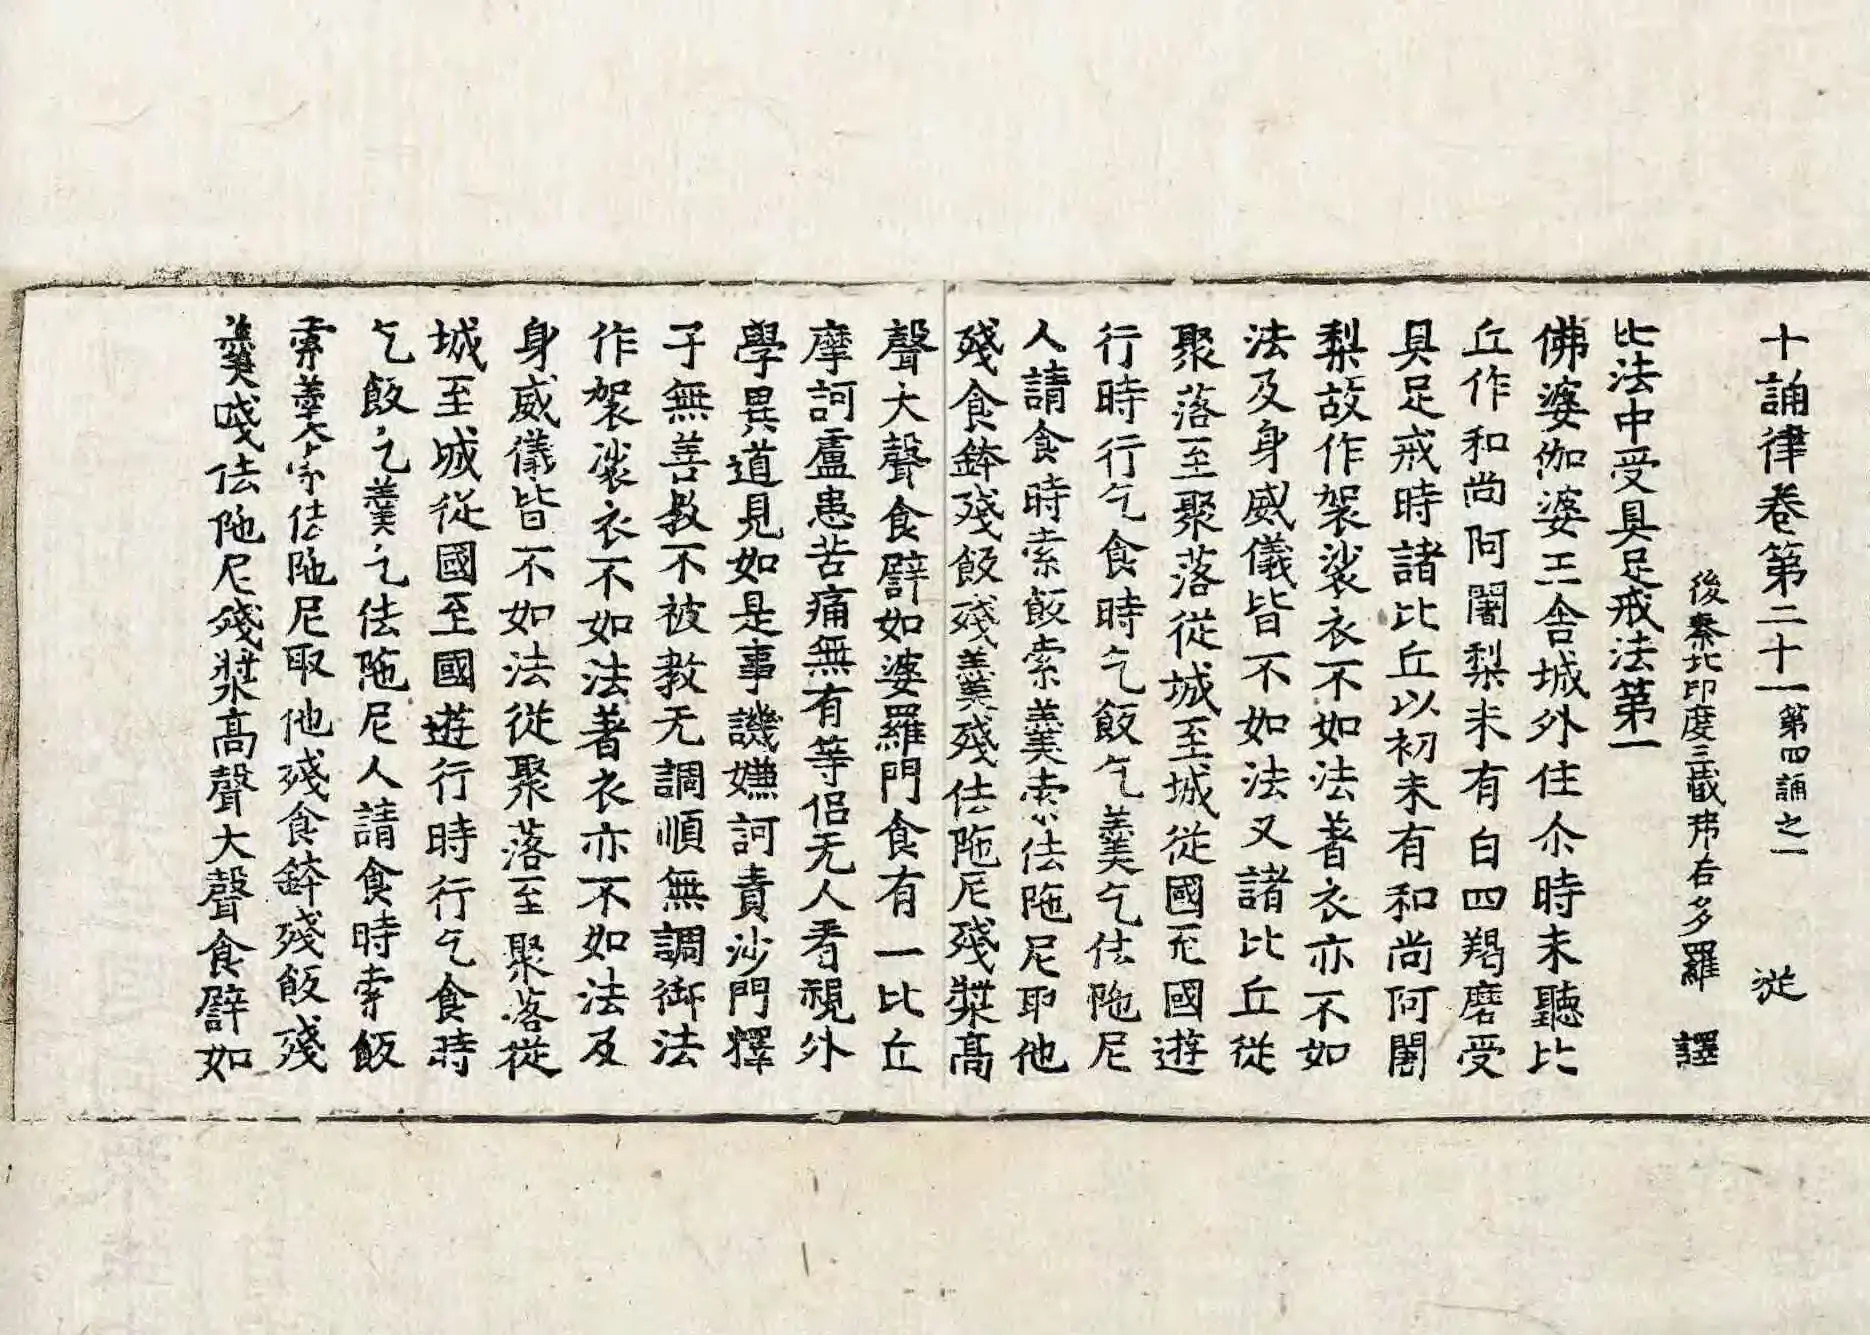 十誦律卷第二十一第四誦之一 従
後秦北印度三藏弗若多羅 譯
比法中受具足戒法第一
佛婆伽婆王舍城外住尒時未聽比
丘作和尚阿闍梨未有白四羯磨受
具足戒時諸比丘以初未有和尚阿闍
梨故作袈裟衣不如法著衣亦不如
法及身威儀皆不如法又諸比丘従
聚落至聚落従城至城従國至國遊
行時行乞食時乞飯乞羹乞佉陁尼
人請食時索飯索羹索佉陁尼取他
殘食鉢殘飯殘羹殘佉陁尼殘漿高
聲大聲食譬如婆羅門食有一比丘
摩訶盧患苦痛無有等侣无人看視外
學異道見如是事譏嫌訶責沙門釋
子無善教不被教无調順無調御法
作袈裟衣不如法著衣亦不如法及
身威儀皆不如法從聚落至聚落從
城至城從國至國遊行時行乞食時
乞飯乞羹乞佉陁尼人請食時索飯
索羹索佉陁尼取他殘食鉢殘飯殘
羹殘佉陁尼殘漿高聲大聲食譬如